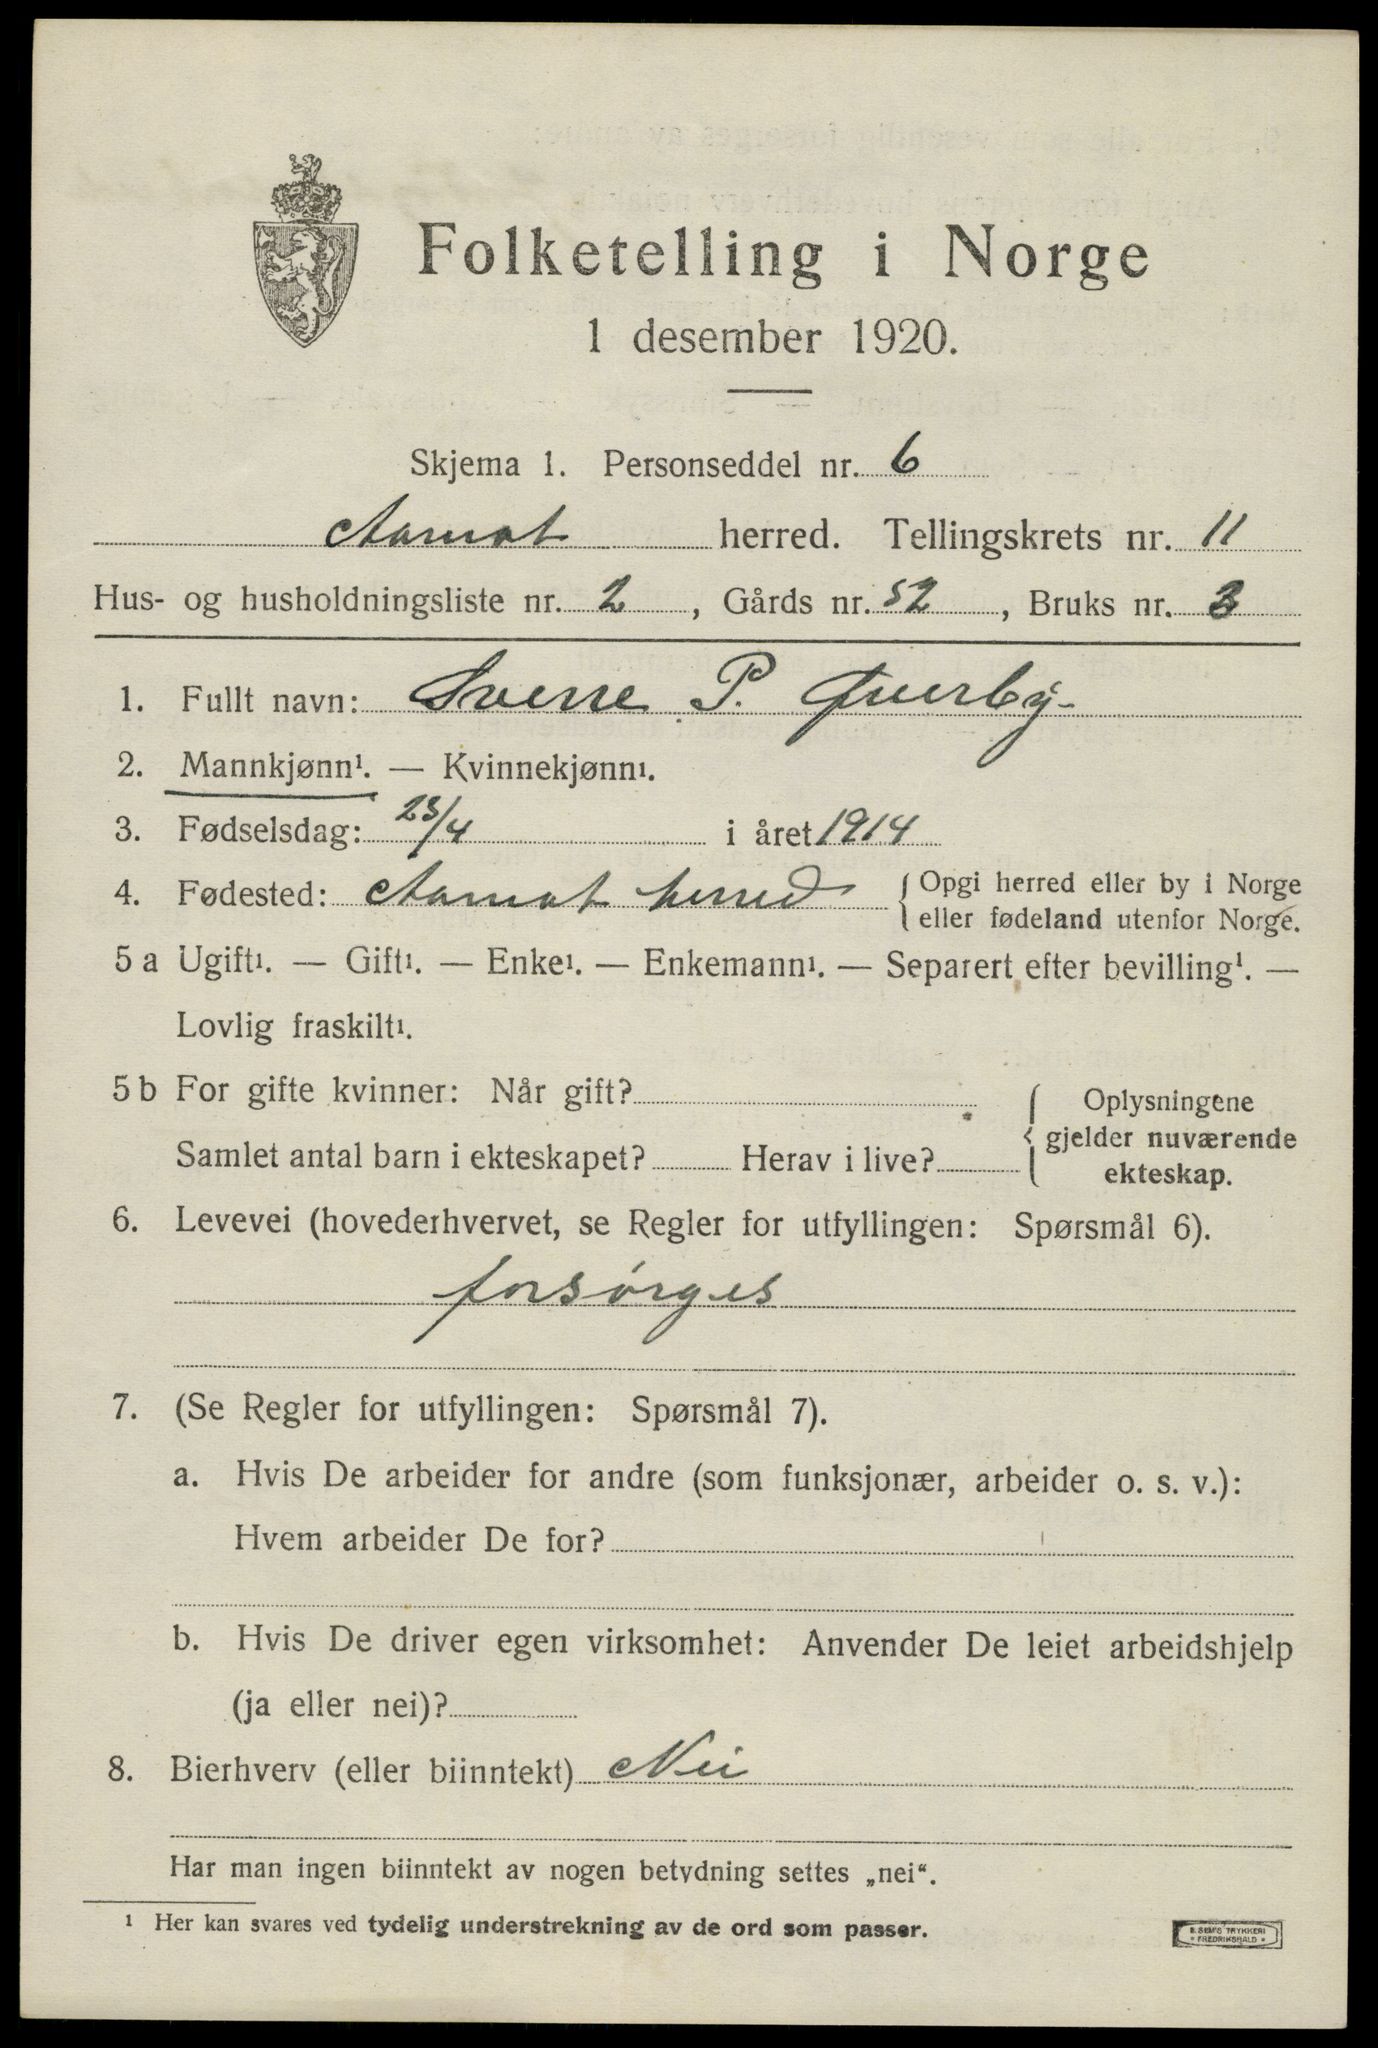 Folketelling i Norge
1 desember 1920.
Skjema 1. Personseddel nr. 6
Aamot herred. Tellingskrets nr. 11
Hus- og husholdningsliste nr. 2, Gårds nr. 52, Bruks nr. 3
1. Fullt navn: Sverre P. Øverby
2. Mannkjønn¹. — Kvinnekjønn¹.
3. Fødselsdag: 23/4 i året 1914
4. Fødested: Aamot herred { Opgi herred eller by i Norge
eller fødeland utenfor Norge.
5 a Ugift¹. — Gift¹. — Enke¹. — Enkemann¹. — Separert efter bevilling¹. —
Lovlig fraskilt¹.
5 b For gifte kvinner: Når gift? { Oplysningene
gjelder nuværende
Samlet antal barn i ekteskapet? Herav i live?
ekteskap.
6. Levevei (hovederhvervet, se Regler for utfyllingen: Spørsmål 6).
forsørges
7. (Se Regler for utfyllingen: Spørsmål 7).
a. Hvis De arbeider for andre (som funksjonær, arbeider o. s. v.):
Hvem arbeider De for?
b. Hvis De driver egen virksomhet: Anvender De leiet arbeidshjelp
(ja eller nei)?
8. Bierhverv (eller biinntekt) Nei
Har man ingen biinntekt av nogen betydning settes „nei“.
¹ Her kan svares ved tydelig understrekning av de ord som passer.
E. SEM'S TRYKKERI
FREDRIKSHALD